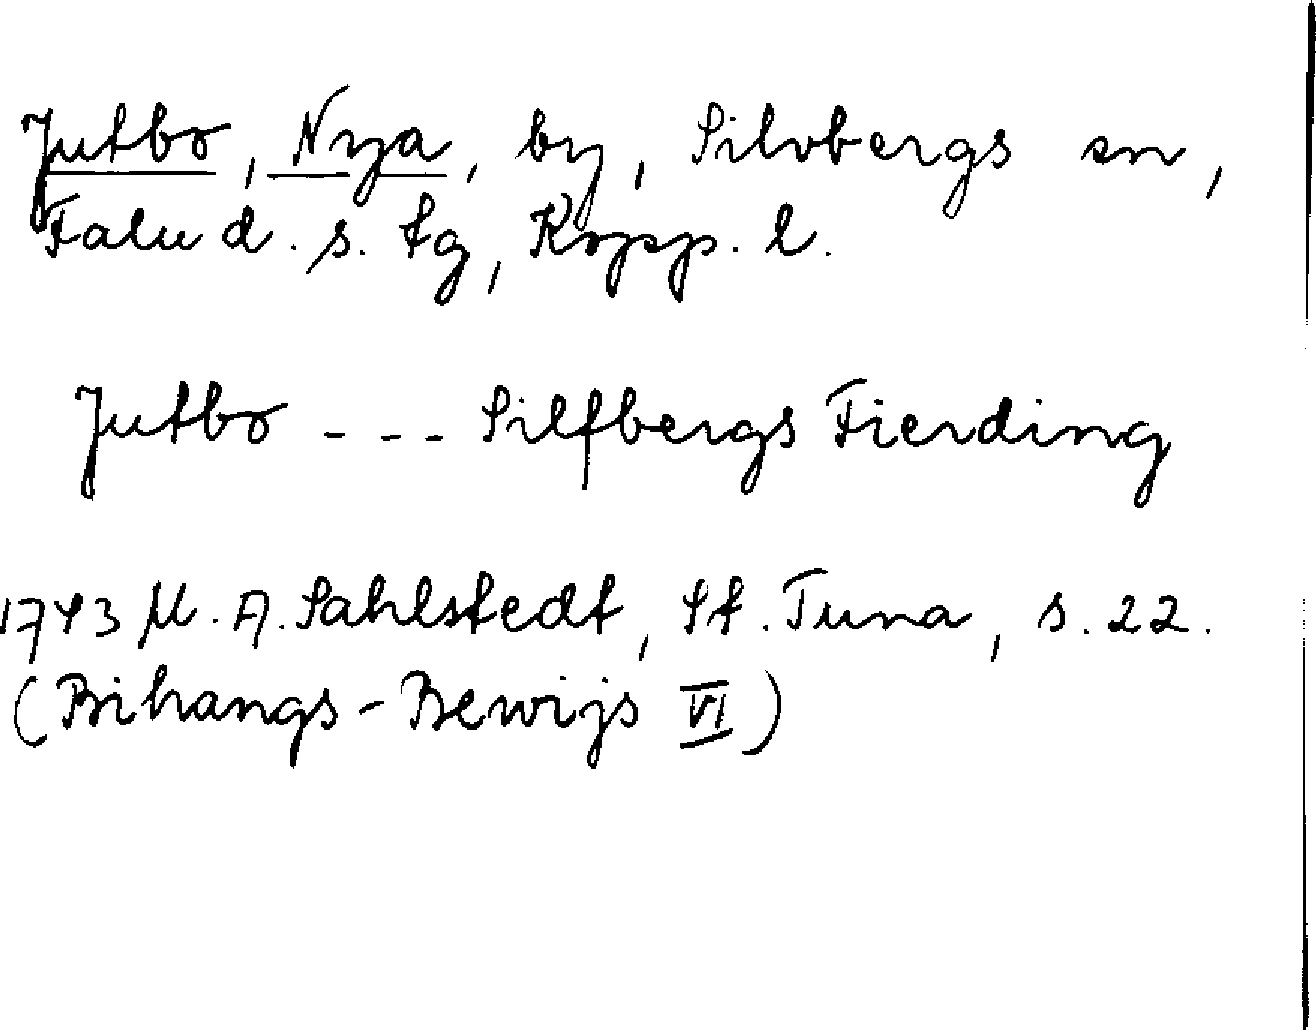 Jutbo, Nya, by, Silvbergs sn,
Falu d. s. tg, Kopp. l.
Jutbo --- Silfbergs Fierding
1743 M. A. Sahlstedt, St. Tuna, s. 22.
(Bihangs-Bewijs VI)